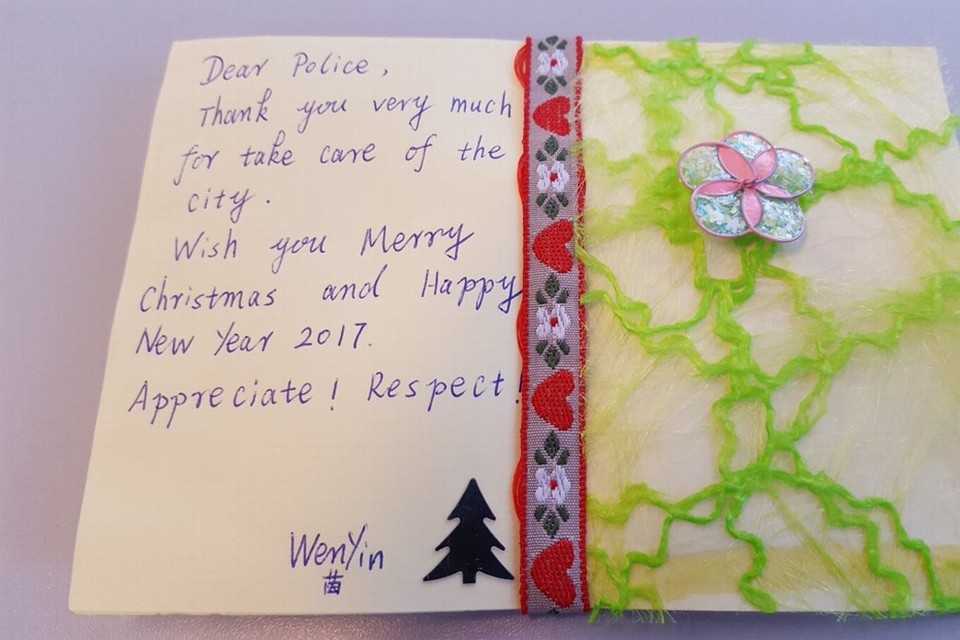 Dear Police,
Thank you very much
for take care of the
city.
Wish you Merry
Christmas and Happy
New Year 2017.
Appreciate! Respect!
WenYin
茵